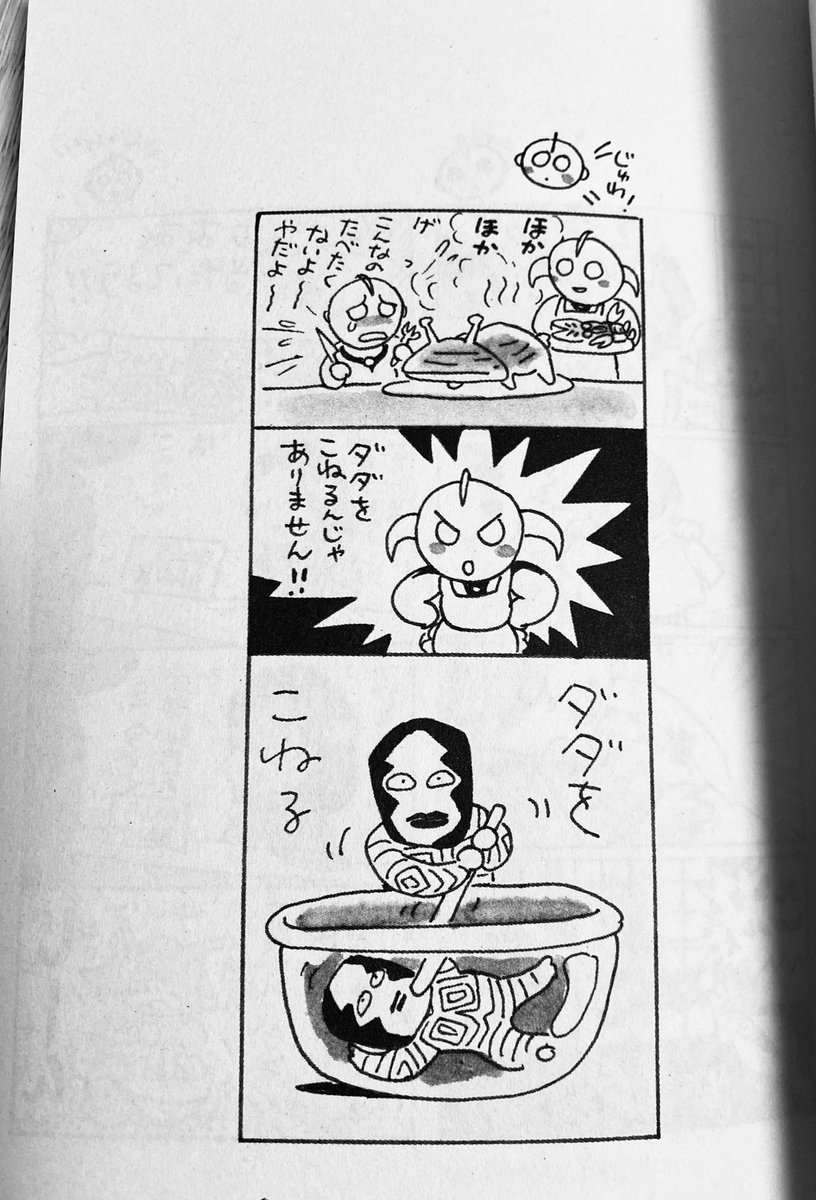 じゅわ!
ほか
ほか
げ
こんなの
たべたく
ないよ〜
やだよ〜
ダダを
こねるんじゃ
ありません!!
ダダを
こねる